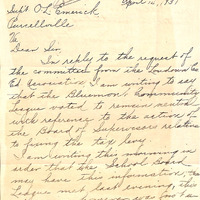 April 12, 1937
Supt. O L Emerick
Purcellville
Va
Dear Sir
In reply to the request of
the committee from the Loudoun Co
Ed Association I am writing to say
that the Bluemont Community
League voted to remain neutral
with reference to the action of
the Board of Supervisors relative
to fixing the tax levy.
I am writing this morning in
order that the School Board
may have this information, the
League met last evening, the
was too